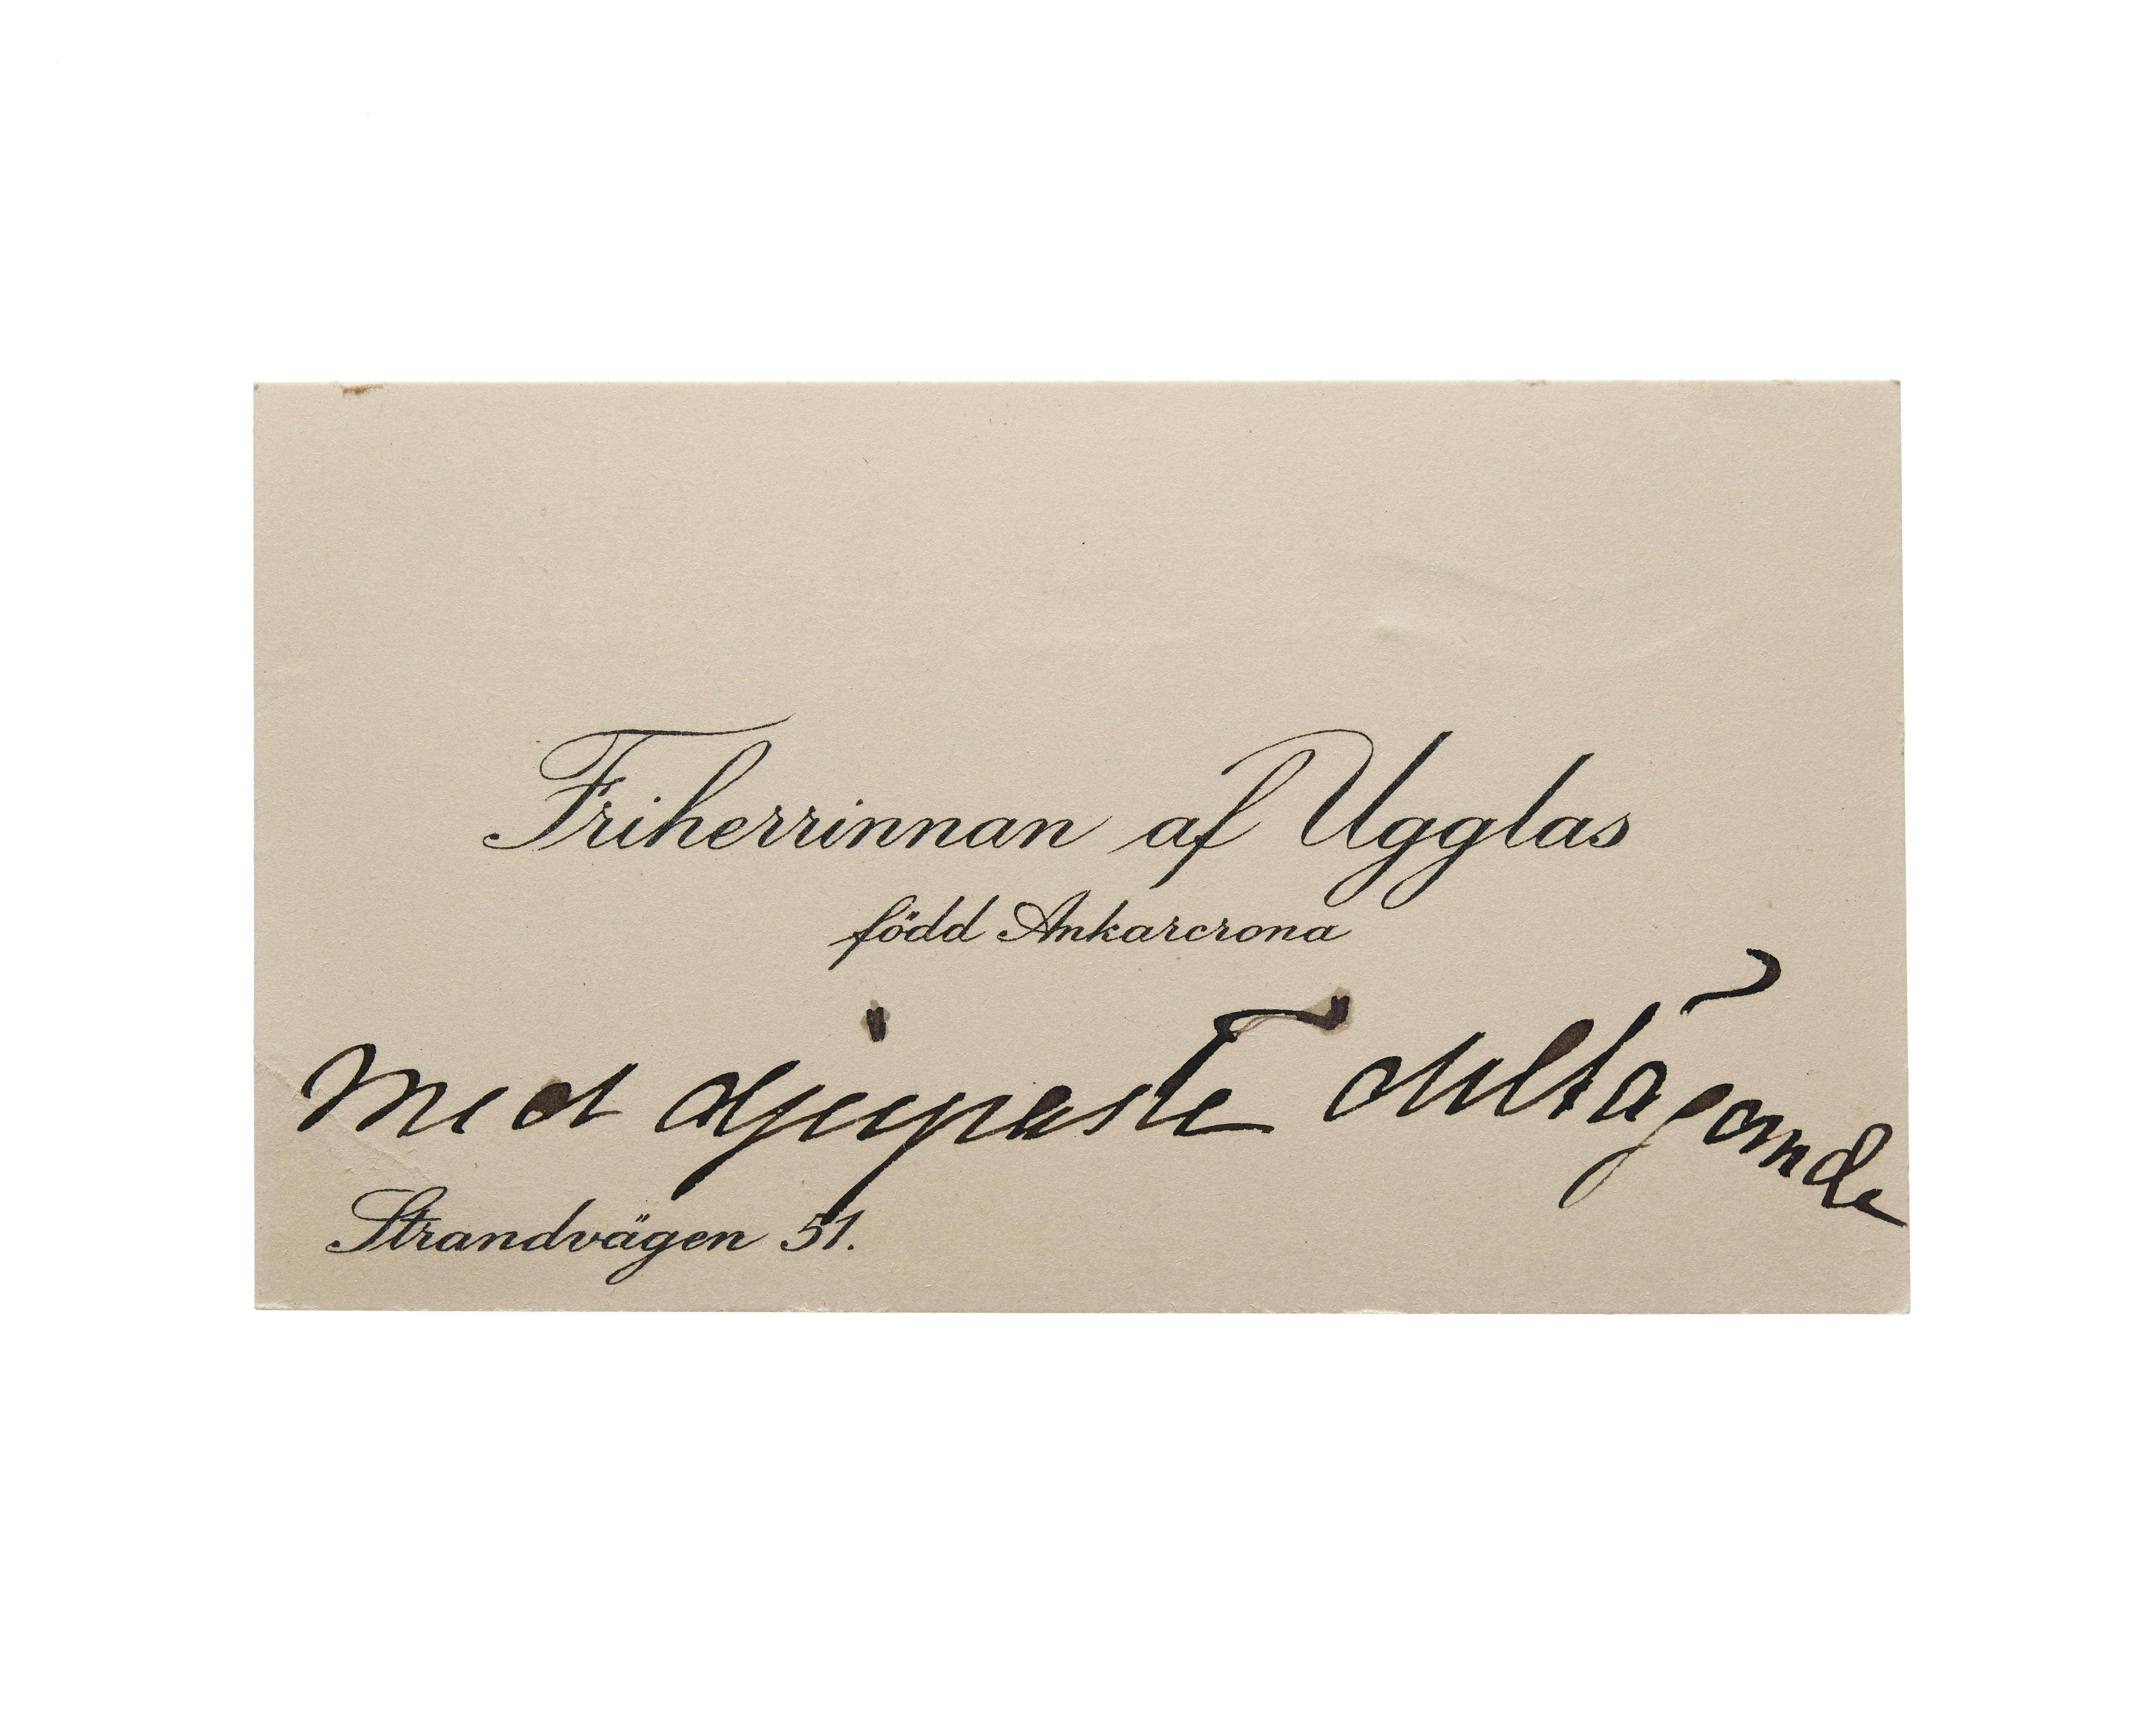 Friherrinnan af Ugglas
född Ankarcrona
med djupaste deltagande
Strandvägen 51.